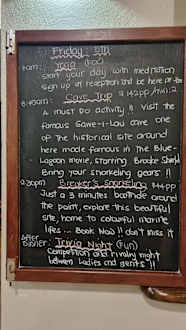 Friday: 5th
7am: Yoga (Foc)
Start your day with meditation
sign up at reception and be here at 7am
8:40am: Cave Trip
A must Do activity !! Visit the
famous Sawa-i-Lau cave one
of the historical site around
here made famous in the Blue-
Lagoon movie, starring Brooke Shield
Bring your snorkeling gears !!
2:30pm Breaker's Snorkeling $44pp
Just a 3 minutes boatride around
the point, explore this beautiful
site, home to colourful marine
lifes... Book Now!! don't miss it
After
Dinner: Trivia Night (fun)
Competition and rivalry night
between Ladies and gent's !!